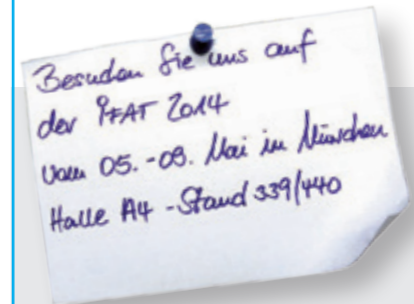 Besuchen Sie uns auf
der IFAT 2014
vom 05.-09. Mai in München
Halle A4 - Stand 339/440